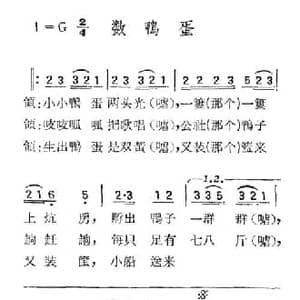 1=G 2/4 数鸭蛋
2 3 3 2 1 2 3 3 2 1 2 2 2 3 5 2 3
领:小小鸭 蛋 两头光(嘘),一篓(那个)一篓
领:吱吱呱 呱 把歌唱(嘘),公社(那个)鸭子
领:生出鸭 蛋 是双黄(嘘),又装(那个)
1.2.
2 1 6 5 2·3 1 2 3 3 5 3 2 1
上 炕 房, 孵出 鸭子 一群 群(嘘),
每只 足有 七八 斤(嘘),
又 装 筐, 小船 送来